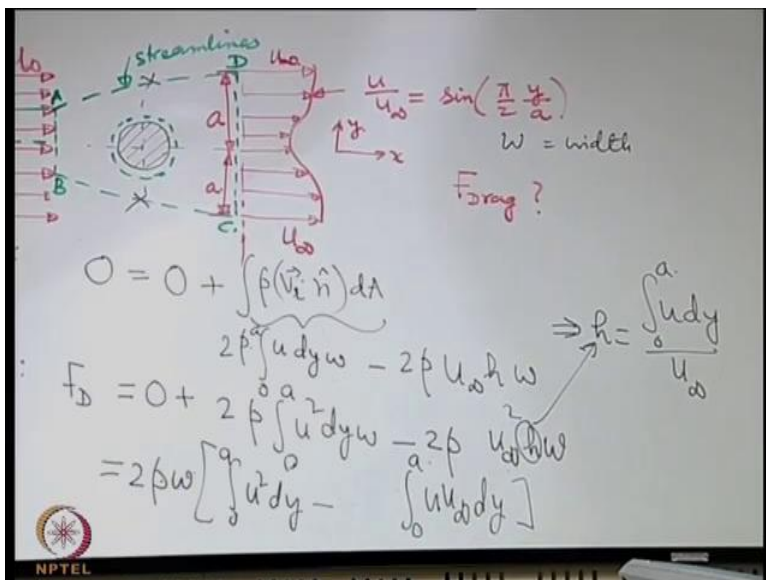 streamlines
D
u∞
A
a
a
B
C
u∞
u/u∞ = sin(π/2 y/a)
y
x
w = width
FDrag ?
0 = 0 + ∫ρ(V⃗r·n̂)dA
2ρ∫₀ᵃ u dy w − 2ρ u∞ h w
⇒ h = ∫₀ᵃ u dy / u∞
FD = 0 + 2ρ∫₀ᵃ u² dy w − 2ρ u∞² h w
= 2ρw[∫₀ᵃ u² dy − ∫₀ᵃ u u∞ dy]
NPTEL